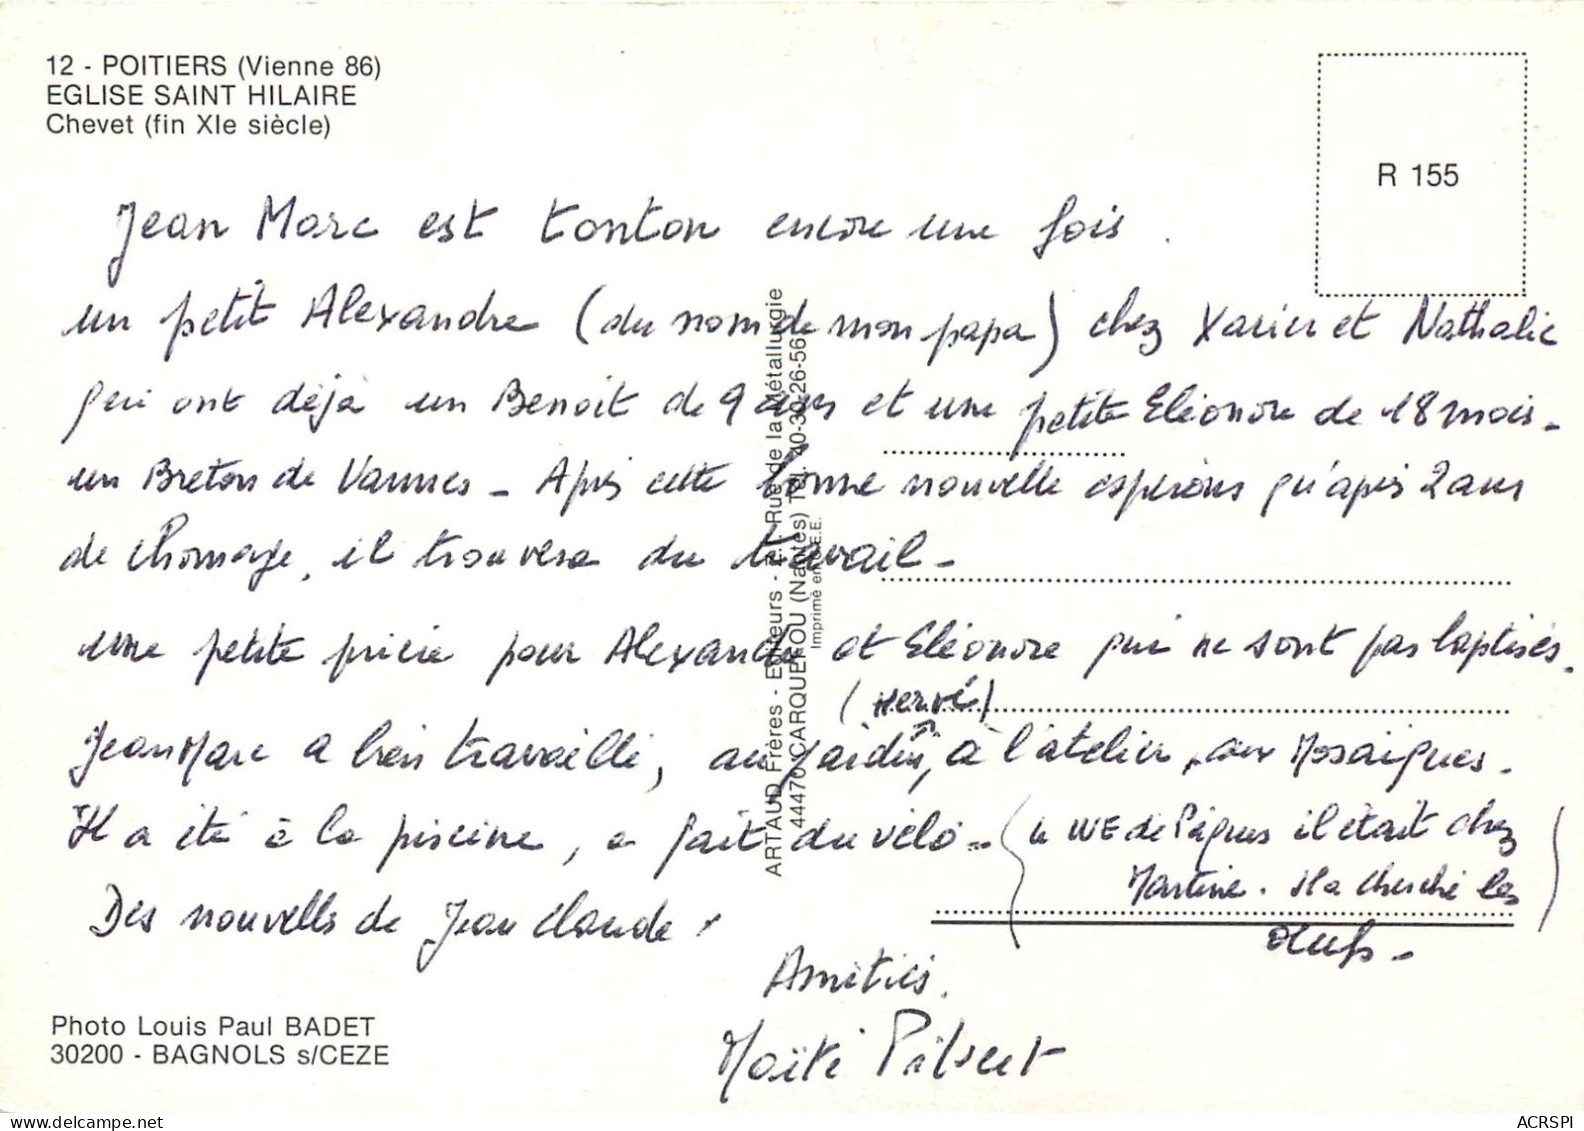 12 - POITIERS (Vienne 86)
EGLISE SAINT HILAIRE
Chevet (fin XIe siècle)
R 155
Jean Marc est tonton encore une fois.
un petit Alexandre (du nom de mon papa) chez Xavier et Nathalie
qui ont déjà un Benoit de 9 ans et une petite Eléonore de 18 mois -
un Breton de Vannes - Après cette bonne nouvelle espérons qu'après 2 ans
de chomage, il trouvera du travail -
une petite prière pour Alexandre et Eléonore qui ne sont pas baptisés.
(Hervé)
Jean Marc a bien travaillé, au jardin, à l'atelier, aux Mosaiques.
Il a été à la piscine, a fait du vélo - (le WE de Pâques il était chez
Martine. Il a cherché les
oeufs -
Des nouvelles de Jean Claude !
Amitiés.
Maïté
ARTAUD Frères - Editeurs - Rue de la Métallurgie
44470 CARQUEFOU (Nantes) Tél. 40-30-26-56
Imprimé en C.E.E.
Photo Louis Paul BADET
30200 - BAGNOLS s/CEZE
ACRSPI